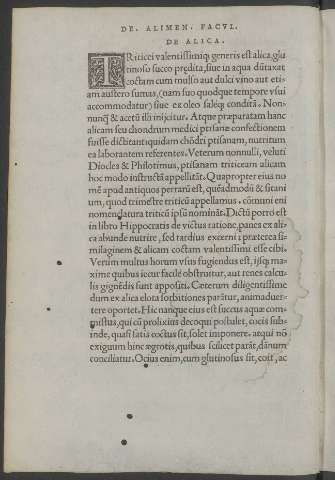 DE. ALIMEN. FACVL.
DE ALICA.
TRiticei valentissimiq; generis est alica, glu
tinoso succo prędita, siue in aqua dūtaxat
coctam cum mulso aut dulci vino aut eti-
am austero sumas, (nam suo quodque tempore vsui
accommodatur) siue ex oleo saleq; conditā. Non-
nunq̄ & acetū illi injicitur. Atque præparatam hanc
alicam seu chondrum medici ptisanæ confectionem
fuisse dictitant: quidam chōdri ptisanam, nutritum
ea laborantem referentes. Veterum nonnulli, veluti
Diocles & Philotimus, ptisanam triticeam alicam
hoc modo instructā appellāt. Quapropter eius no
mē apud antiquos perrarū est, quēadmodū & sitani
um, quod trimestre triticū appellamus. cōmuni eni
nomenclatura triticū ipsū nomināt. Dictū porro est
in libro Hippocratis de victus ratione, panes ex ali-
ca abunde nutrire, sed tardius excerni: præterea si-
milaginem & alicam coctam valentissimi esse cibi.
Verùm multus horum vsus fugiendus est, ijsq; ma
xime quibus iecur facile obstruitur, aut renes calcu-
lis gignēdis sunt appositi. Cæterum diligentissime
dum ex alica elota sorbitiones parātur, animaduer-
tere oportet. Hic nanque eius est succus aquæ com-
mistus, qui cū prolixius decoqui postulet, cocis sub-
inde, quasi satis coctus sit, solet imponere. atqui nō
exiguum hinc ægrotis, quibus scilicet parāt, dānum
conciliatur. Ocius enim, cum glutinosus sit, coit, ac